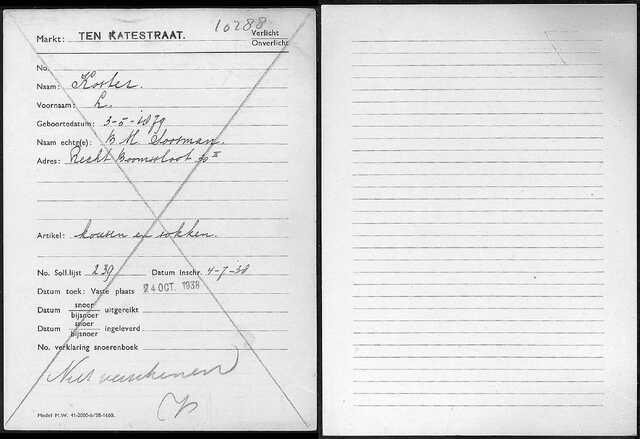 10288
Markt: TEN KATESTRAAT.
Verlicht
Onverlicht
No.
Naam: Koster.
Voornaam: L.
Geboortedatum: 3-5-1879
Naam echtg(e): B M Soesman.
Adres: Recht Boomssloot 70 II
Artikel: kousen en sokken.
No. Soll.lijst 239 Datum Inschr. 4-7-38
Datum toek: Vaste plaats 24 OCT. 1938
Datum snoer bijsnoer uitgereikt
Datum snoer bijsnoer ingeleverd
No. verklaring snoerenboek
Niet verschenen
Model M.W. 41-2000-6/38-1660.